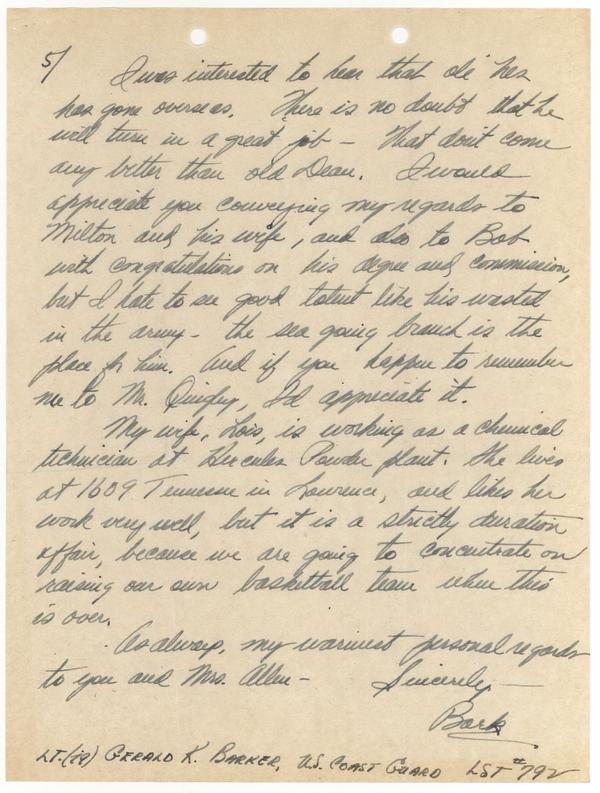 5/ I was interested to hear that ole' Nes
has gone overseas. There is no doubt that he
will turn in a great job - That don't come
any better than old Dean. I would
appreciate you conveying my regards to
Milton and his wife, and also to Bob
with congratulations on his degree and commission,
but I hate to see good talent like his wasted
in the army - the sea going branch is the
place for him. And if you happen to remember
me to Mr. Quigley, I'd appreciate it.
My wife, Lois, is working as a chemical
technician at Hercules Powder plant. She lives
at 1609 Tennessee in Lawrence, and likes her
work very well, but it is a strictly duration
affair, because we are going to concentrate on
raising our own basketball team when this
is over.
As always, my warmest personal regards
to you and Mrs. Allen - Sincerely -
Bark
LT.(jg) GERALD K. BARKER, U.S. COAST GUARD LST #792